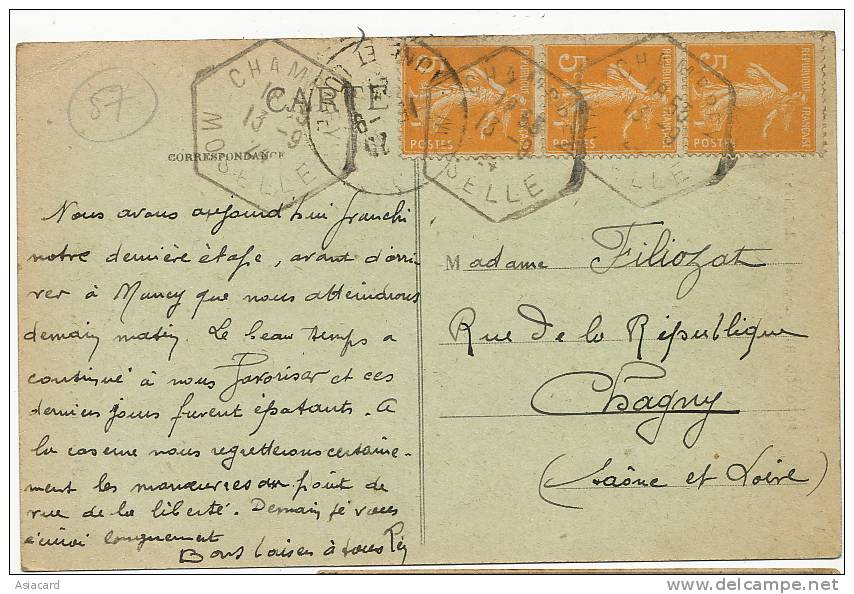 57
CARTE
CORRESPONDANCE
CHAMPREY
18 53
13 - 9
MOSELLE
5 REPUBLIQUE FRANÇAISE
POSTES
5 REPUBLIQUE FRANÇAISE
POSTES
5 REPUBLIQUE FRANÇAISE
POSTES
Nous avons aujourd'hui franchi
notre dernière étape, avant d'arri
ver à Nancy que nous atteindrons
demain matin. Le beau temps a
continué à nous favoriser et ces
derniers jours furent épatants. A
la caserne nous regretterons certaine-
ment les manœuvres au point de
vue de la liberté. Demain je vous
écrirai longuement
Bons baisers à tous
Madame Filiozat
Rue de la République
Chagny
(Saône et Loire)
Asiacard
delcampe.net